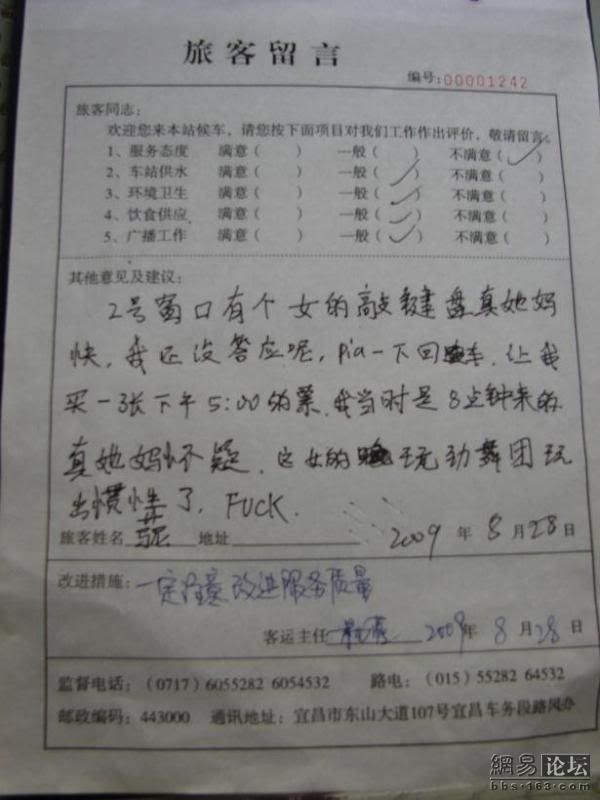 旅客留言
编号:00001242
旅客同志:
欢迎您来本站候车，请您按下面项目对我们工作作出评价，敬请留言。
1、服务态度 满意( ) 一般( ) 不满意(✓)
2、车站供水 满意( ) 一般(✓) 不满意( )
3、环境卫生 满意( ) 一般(✓) 不满意( )
4、饮食供应 满意( ) 一般(✓) 不满意( )
5、广播工作 满意( ) 一般(✓) 不满意( )
其他意见及建议:
2号窗口有个女的敲键盘真她妈
快，我还没答应呢，pia一下回车，让我
买一张下午5:00的票，我当时是8点钟来的
真她妈怀疑，这女的玩劲舞团玩
出惯性了，FUCK.
旅客姓名 地址 2009年8月28日
改进措施: 一定注意改进服务质量
客运主任 2009年8月28日
监督电话:(0717)6055282 6054532 路电:(015)55282 64532
邮政编码:443000 通讯地址:宜昌市东山大道107号宜昌车务段路风办
網易 论坛
bbs.163.com